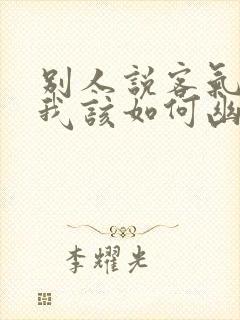 别人說客氣
我該如何幽
李耀光